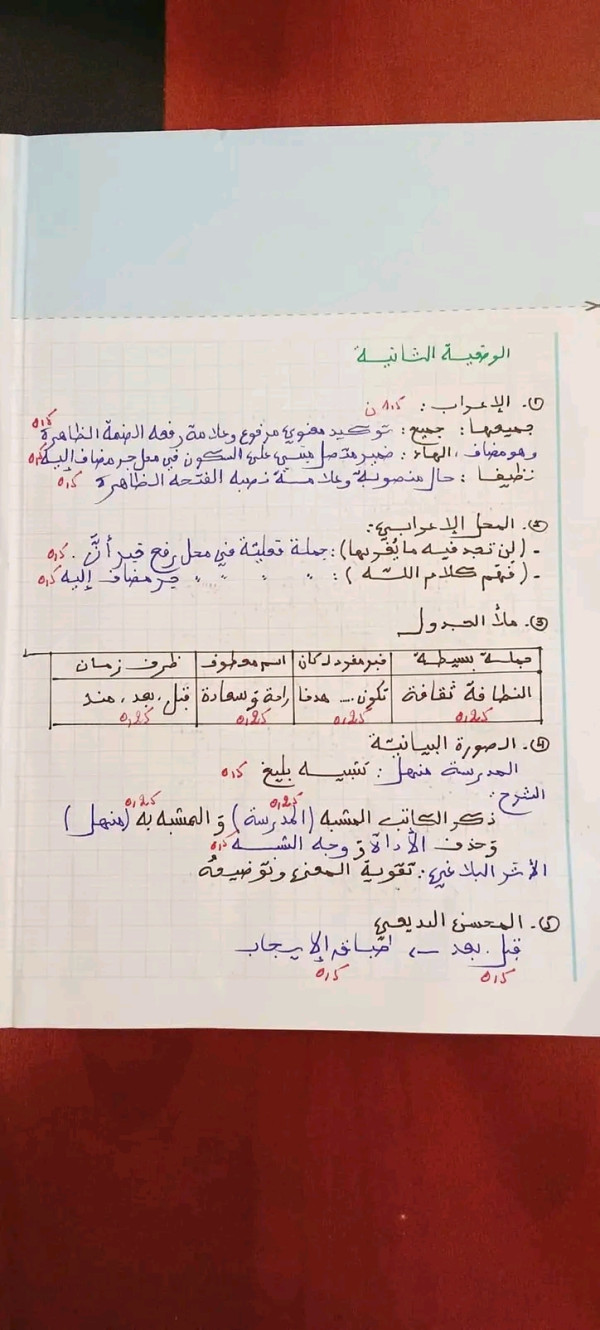 الوضعية الثانية
①. الإعراب : 1.5 ن
جميعها : جميع : توكيد معنوي مرفوع وعلامة رفعه الضمة الظاهرة 0,5
وهو مضاف ، الهاء : ضمير متصل مبني على السكون في محل جر مضاف إليه 0,5
نظيفا : حال منصوبة وعلامة نصبه الفتحة الظاهرة 0,5
②. المحل الإعرابي :
- (لن تجد فيه ما يُقربها) : جملة فعلية في محل رفع خبر أنَّ . 0,5
- (فهم كلام الله) : " " " " جر مضاف إليه 0,5
③. ملأ الجدول
جملة بسيطة | خبر مفرد لـ كان | اسم معطوف | ظرف زمان
النظافة ثقافة | تكون .... هدفا | راحة وَ سعادة | قبل ، بعد ، منذ
0,25 0,25 0,25 0,25
④. الصورة البيانية
المدرسة منهل : تشبيه بليغ 0,5
الشرح :
0,25 0,25
ذكر الكاتب المشبه (المدرسة) وَ المشبه به (منهل)
وَ حذف الأداة وَ وجه الشبه 0,5
الأثر البلاغي : تقوية المعنى وتوضيحهُ
⑤. المحسن البديعي
قبل . بعد ← طباق الإيجاب
0,5 0,5